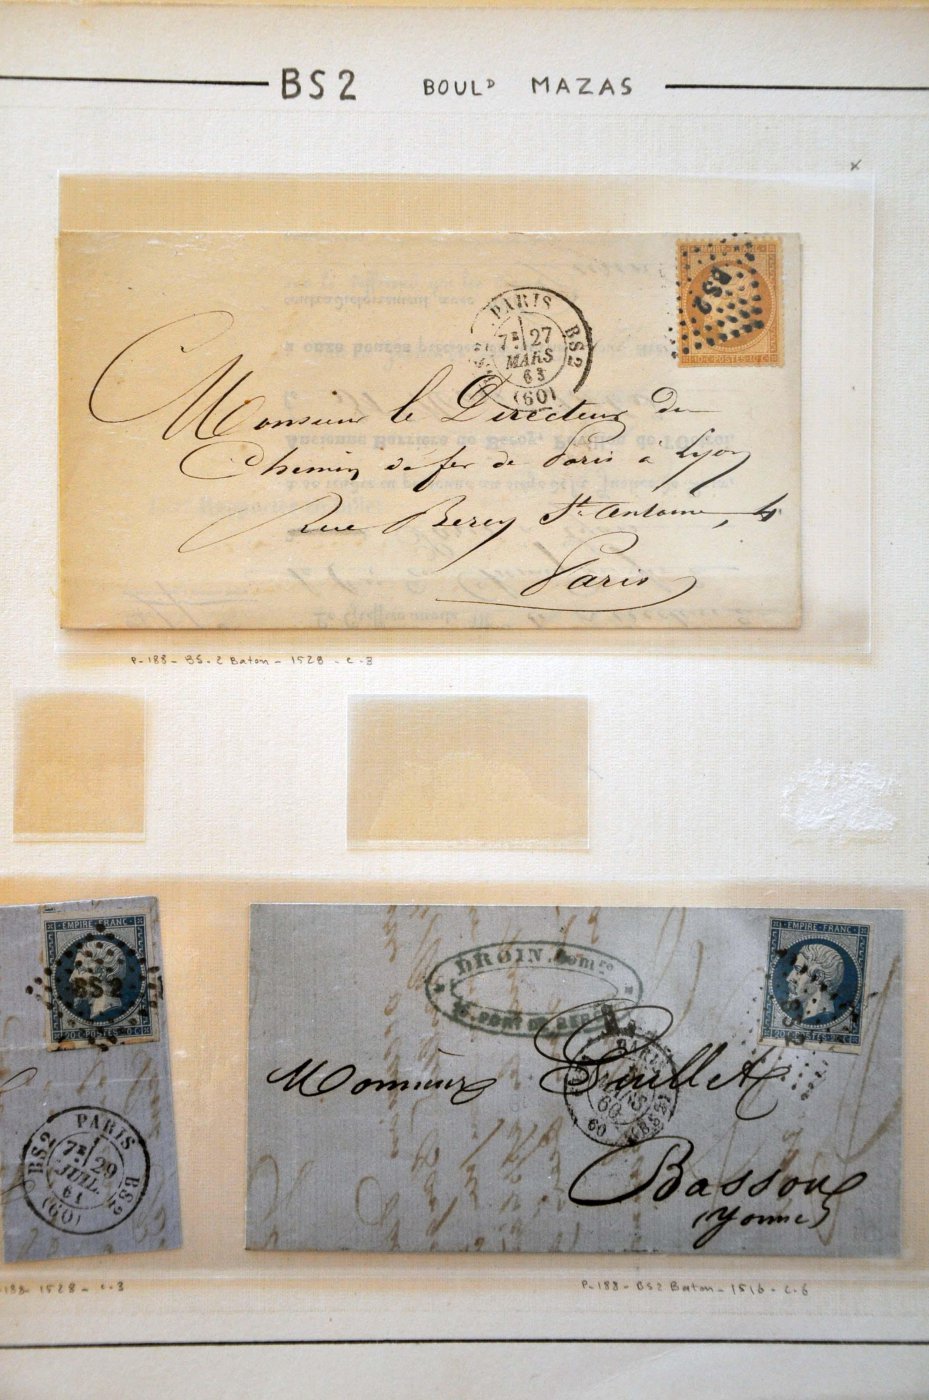 BS2 BOULᴰ MAZAS
x
PARIS BS2
7ᴱ 27
MARS
63
(60)
BS2
10 C POSTES 10 C
Monsieur le Directeur du
Chemin de fer de Paris a Lyon
Rue Bercy St. Antoine, 4
Paris
P-188 - BS-2 Baton - 1528 - C-3
EMPIRE FRANC
BS2
20 C POSTES 20 C
PARIS
BS2 BS2
7ᴱ 29
JUIL.
61
(60)
188 1528 - C-3
DROIN, Comre
PORT DE BER
EMPIRE FRANC
20 C POSTES 20 C
PARIS
60
60
Monsieur Guillet
Bassou
(Yonne)
P-188 - BS2 Baton - 1516 - C-6